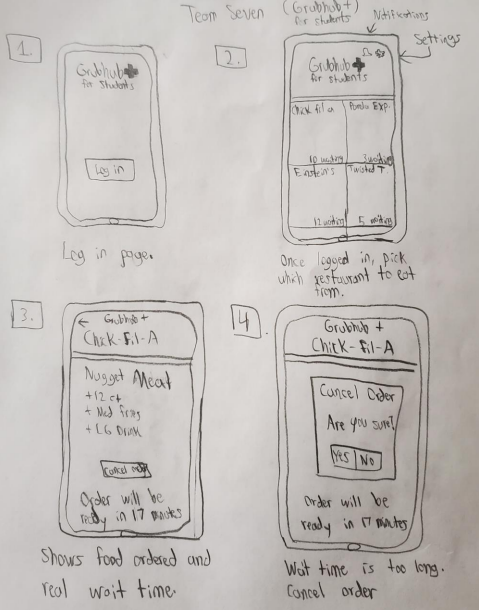 Team Seven (Grubhub+ for students)
Notifications
Settings
1.
Grubhub+
for students
Log in
Log in page.
2.
Grubhub+
for students
Chick fil a
Panda Exp.
10 waiting
3 waiting
Einstein's
Twisted T
12 waiting
5 waiting
Once logged in, pick
which restaurant to eat
from.
3.
← Grubhub +
Chick-fil-A
Nugget Meat
+12 ct
+ Med fries
+ LG Drink
Cancel order
Order will be
ready in 17 minutes
Shows food ordered and
real wait time.
4.
Grubhub +
Chick-fil-A
Cancel Order
Are you sure?
Yes No
Order will be
ready in 17 minutes
Wait time is too long.
Cancel order